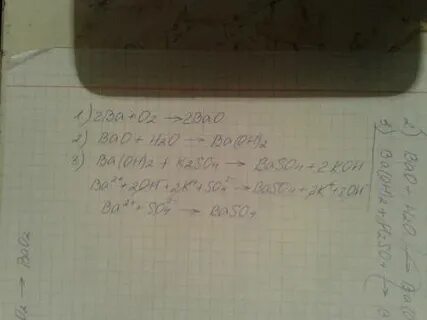 1) 2Ba + O2 → 2BaO
2) BaO + H2O → Ba(OH)2
3) Ba(OH)2 + K2SO4 → BaSO4 + 2KOH
Ba²⁺ + 2OH⁻ + 2K⁺ + SO4²⁻ → BaSO4 + 2K⁺ + 2OH⁻
Ba²⁺ + SO4²⁻ → BaSO4
2) BaO + H2O →
3) Ba(OH)2 + H2SO4 →
→ BaO2